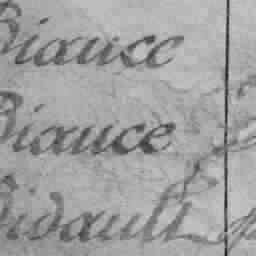 Biauce
Biauce
Bidault